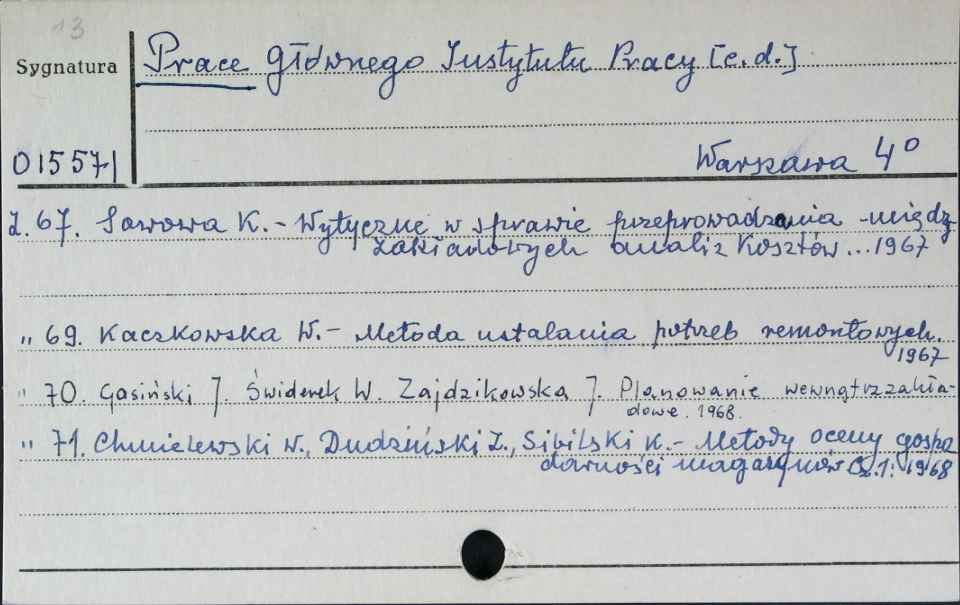 13
Sygnatura
Prace Głównego Instytutu Pracy [c.d.]
015571
Warszawa 4°
Z. 67. Sowowa K. - Wytyczne w sprawie przeprowadzania między
zakładowych analiz kosztów... 1967
" 69. Kaczkowska W. - Metoda ustalania potrzeb remontowych.
1967
" 70. Gasiński J. Świderek W. Zajdzikowska J. Planowanie wewnątrzzakła-
dowe. 1968.
" 71. Chmielewski W., Dudziński Z., Sibilski K. - Metody oceny gospo
darności magazynów Cz. 1: 1968